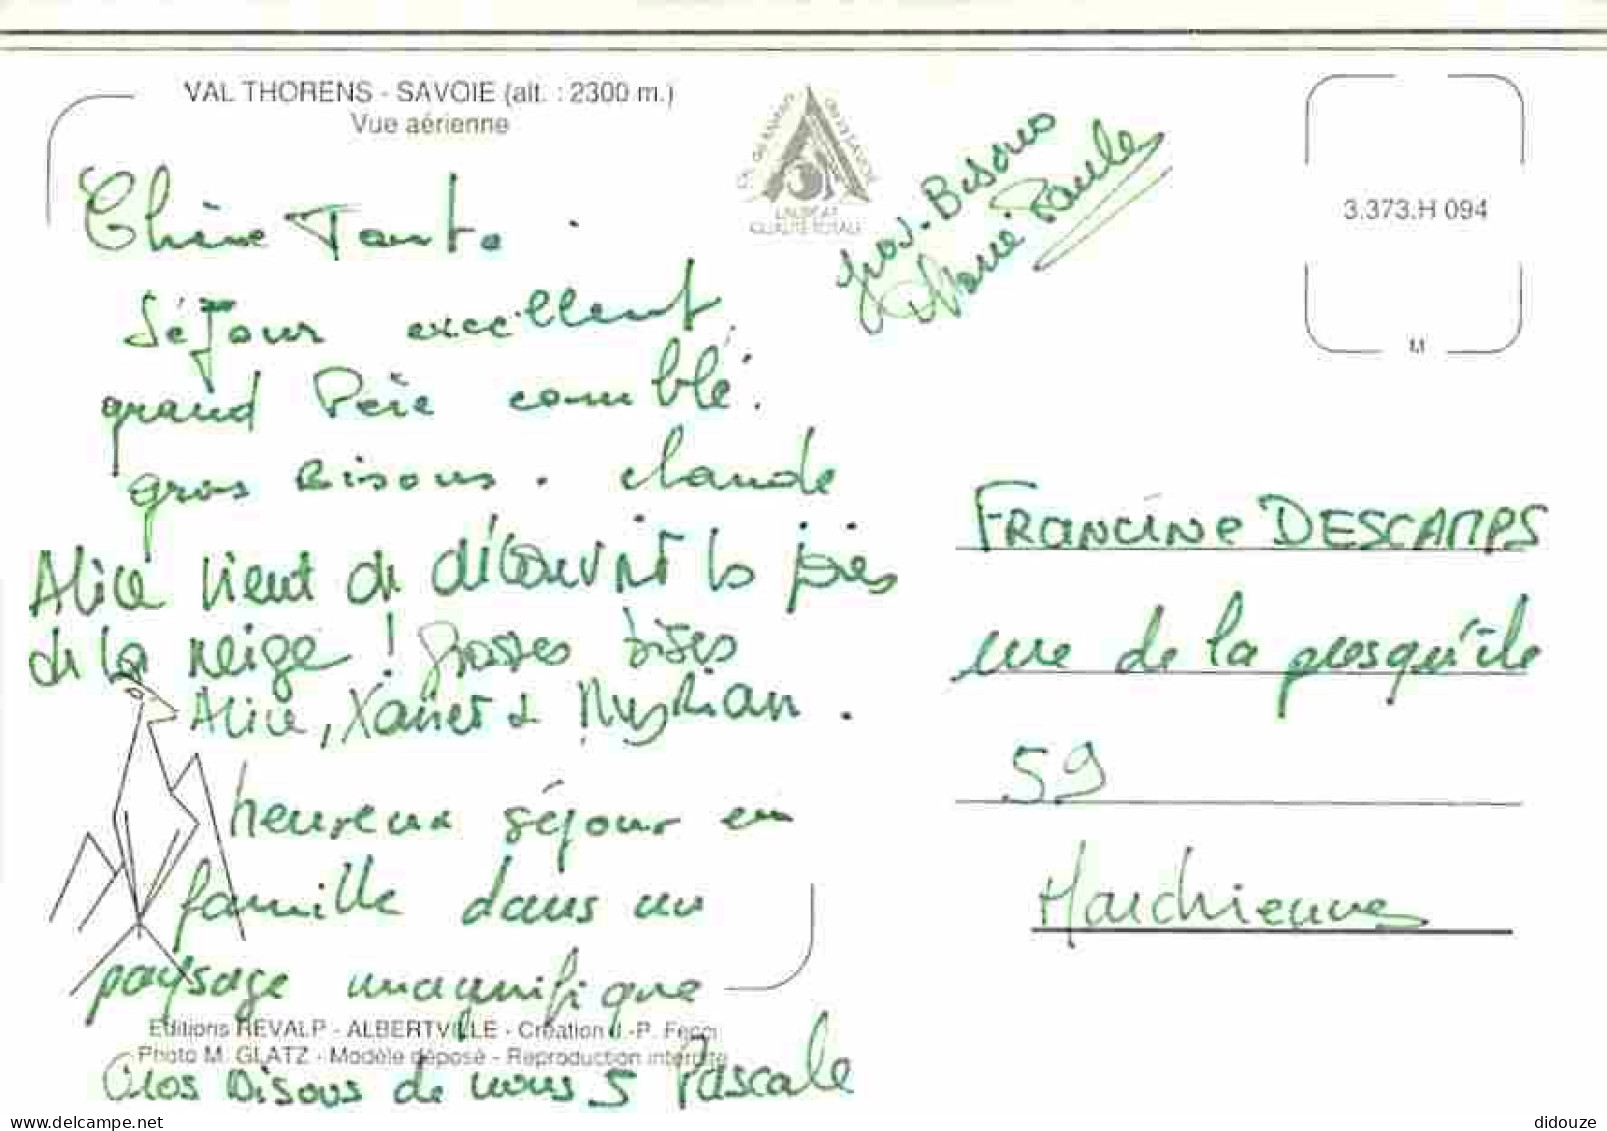 VAL THORENS - SAVOIE (alt. : 2300 m.)
Vue aérienne
LAUREAT
QUALITE TOTALE
gros. Bisous
Marie Paule
3.373.H 094
Chère Tante.
Séjour excellent,
grand Père comblé.
gros Bisous. Claude
Alice vient de découvrir les joies
de la neige ! Grosses bises
Alice, Xavier &
heureux séjour en
famille dans un
paysage magnifique
Editions REVALP - ALBERTVILLE - Création J.-P.
Photo M. GLATZ - Modèle déposé - Reproduction interdite
Gros Bisous de nous 5 Pascale
FRANCINE DESCAMPS
rue de la presqu'île
59
Marchiennes
didouze